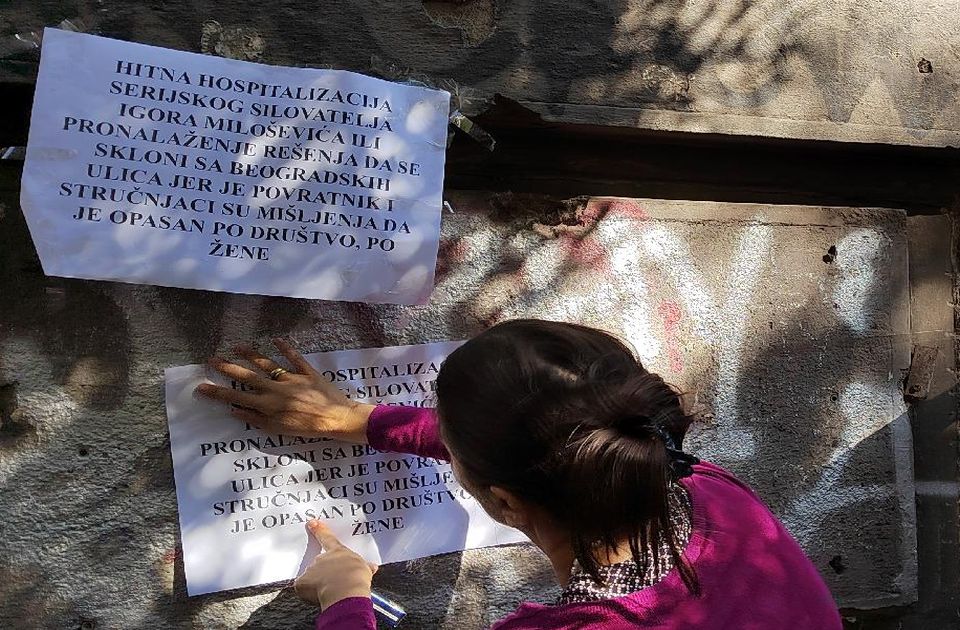 HITNA HOSPITALIZACIJA
SERIJSKOG SILOVATELJA
IGORA MILOŠEVIĆA ILI
PRONALAŽENJE REŠENJA DA SE
SKLONI SA BEOGRADSKIH
ULICA JER JE POVRATNIK I
STRUČNJACI SU MIŠLJENJA DA
JE OPASAN PO DRUŠTVO, PO
ŽENE
SKLONI SA
ULICA JER JE
STRUČNJACI SU
JE OPASAN PO DRUŠTVO,
ŽENE